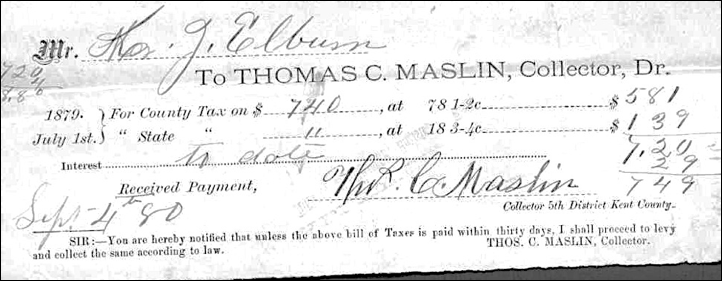 Mr. Thos. J. Elburn
To THOMAS C. MASLIN, Collector, Dr.
1879. For County Tax on $ 740, at 78 1-2c $ 581
July 1st. " State " " , at 18 3-4c $ 139
7.20
Interest to date 29
Received Payment, Thos. C. Maslin 749
Collector 5th District Kent County.
Sept 4th 80
SIR:—You are hereby notified that unless the above bill of Taxes is paid within thirty days, I shall proceed to levy
and collect the same according to law. THOS. C. MASLIN, Collector.